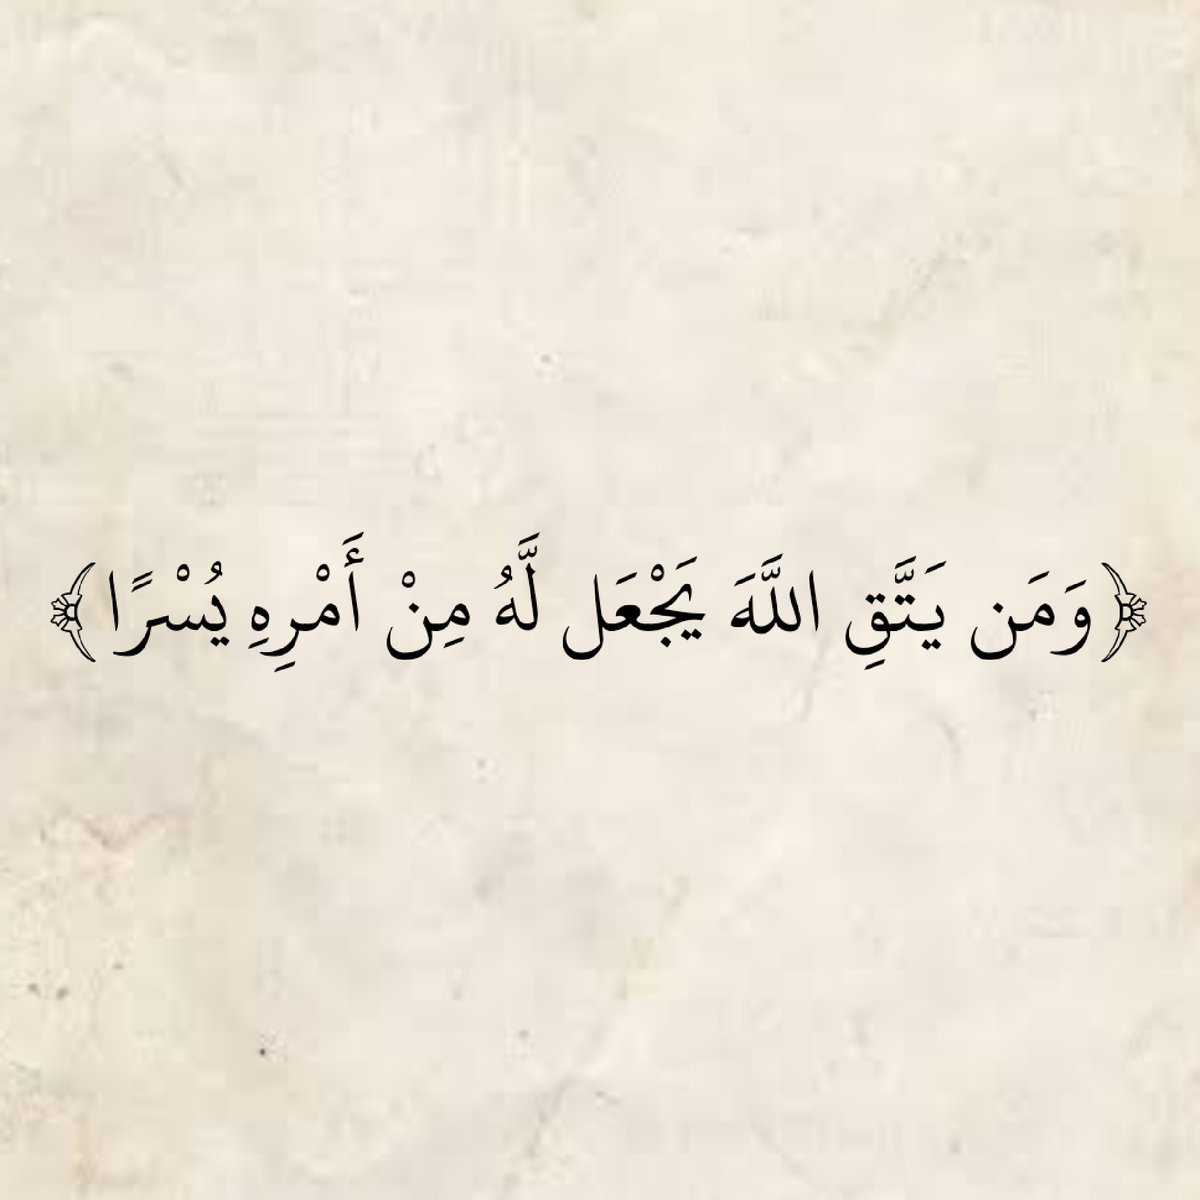 ﴿وَمَن يَتَّقِ اللَّهَ يَجْعَل لَّهُ مِنْ أَمْرِهِ يُسْرًا﴾